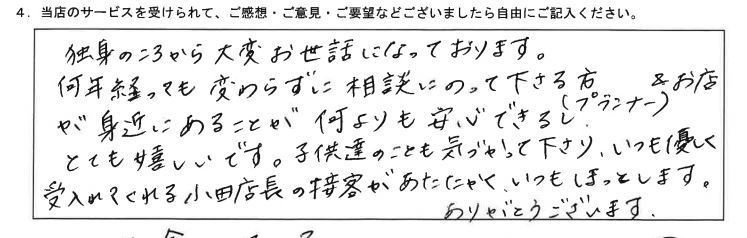 4. 当店のサービスを受けられて、ご感想・ご意見・ご要望などございましたら自由にご記入ください。
独身のころから大変お世話になっております。
何年経っても変わらずに相談にのって下さる方(プランナー)&お店
が身近にあることが何よりも安心できるし、
とても嬉しいです。子供達のことも気づかって下さり、いつも優しく
受入れてくれる小田店長の接客があたたかく、いつもほっとします。
ありがとうございます。